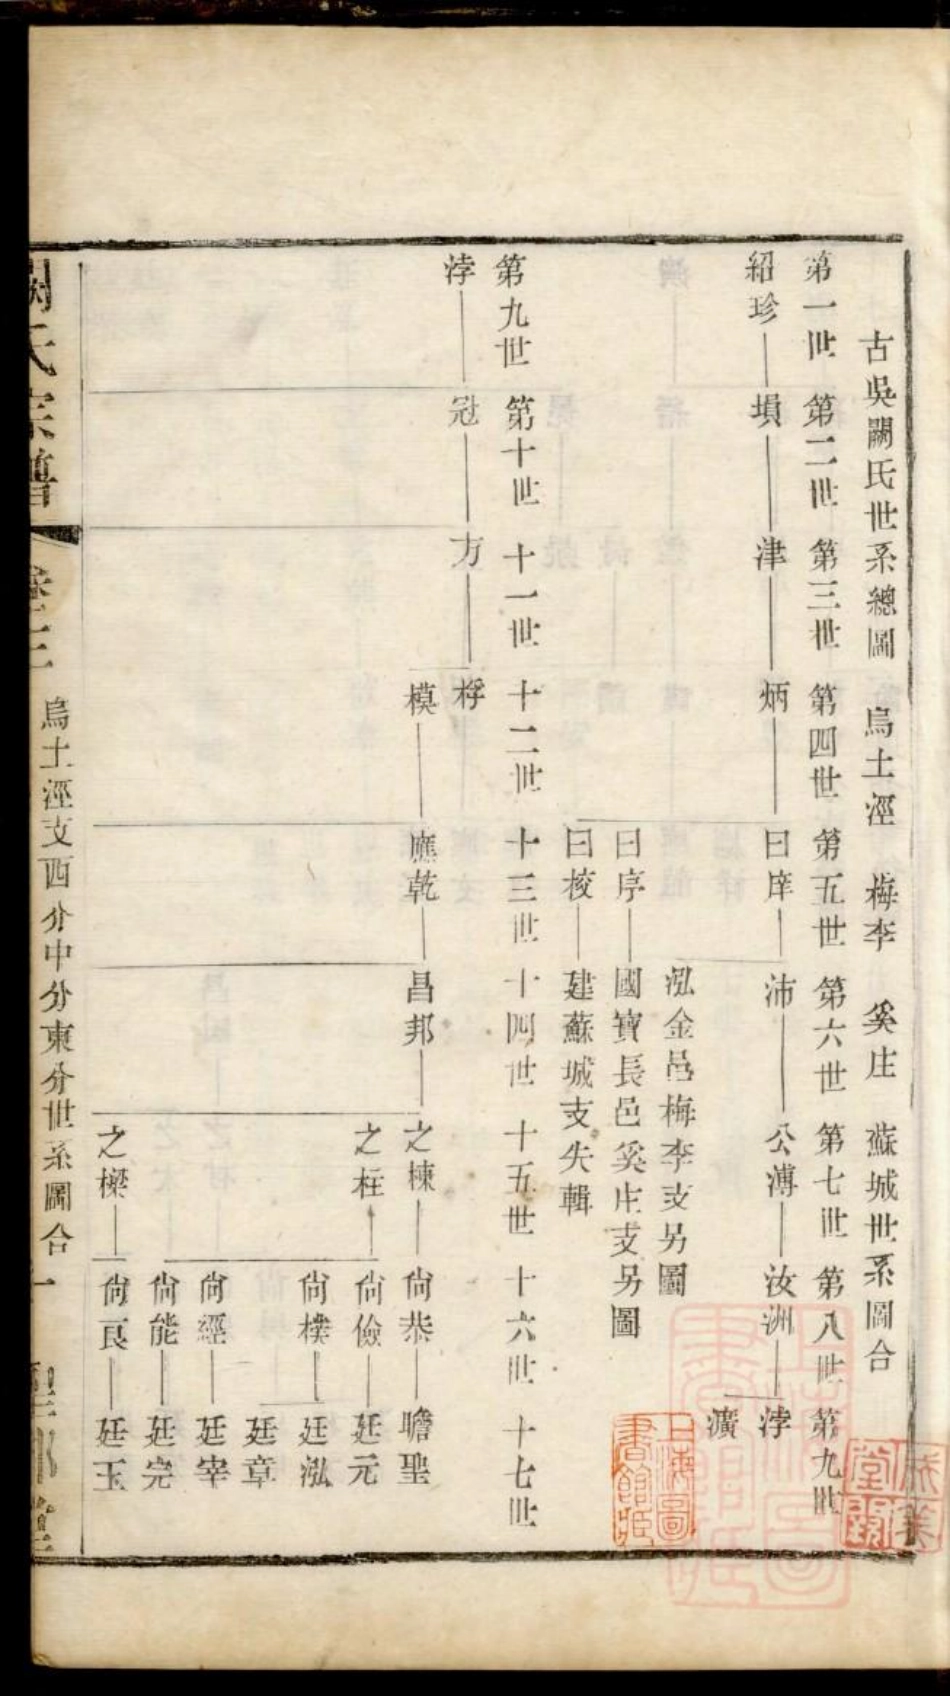 古吳闕氏世系總圖 烏土涇 梅李 奚庄 蘇城世系圖合
第一世 第二世 第三世 第四世 第五世 第六世 第七世 第八世 第九世
紹珍 塤 津 炳 曰庠 沛 公溥 汝洲 浡
瀇
泓金邑梅李支另圖
曰序 國寶長邑奚庄支另圖
曰校 建蘇城支失輯
第九世 第十世 十一世 十二世 十三世 十四世 十五世 十六世 十七世
浡 冠 方 桴
模 應乾 昌邦 之棟 尙恭 瞻聖
之柱 尙儉 廷元
尙樸 廷泓
廷章
尙經 廷宰
尙能 廷完
之樑 尙良 廷玉
闕氏宗譜 卷二 烏土涇支西分中分東分世系圖合 一